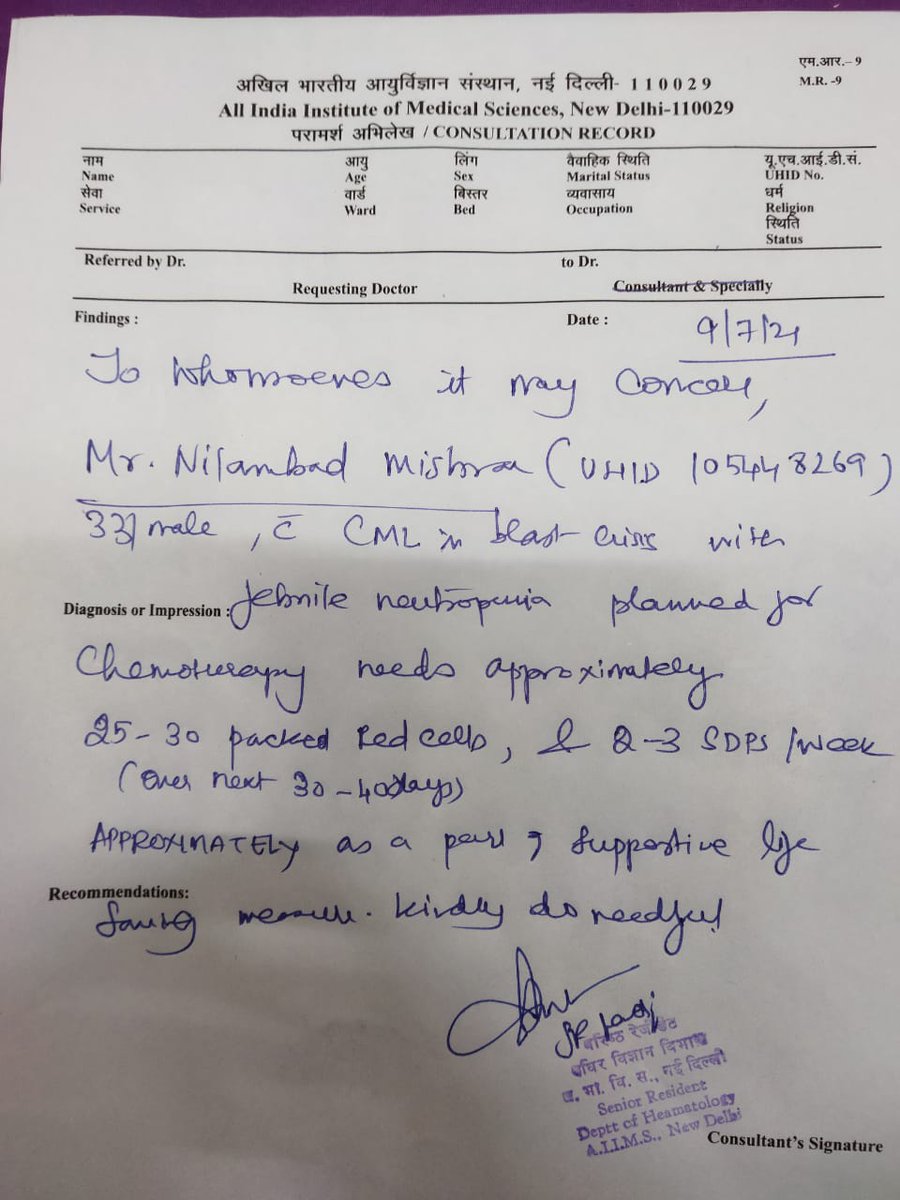 एम.आर.– 9
M.R. -9
अखिल भारतीय आयुर्विज्ञान संस्थान, नई दिल्ली- 110029
All India Institute of Medical Sciences, New Delhi-110029
परामर्श अभिलेख / CONSULTATION RECORD
नाम आयु लिंग वैवाहिक स्थिति यू.एच.आई.डी.सं.
Name Age Sex Marital Status UHID No.
सेवा वार्ड बिस्तर व्यवासाय धर्म
Service Ward Bed Occupation Religion
स्थिति
Status
Referred by Dr. to Dr.
Requesting Doctor Consultant & Specially
Findings : Date : 9/7/21
To Whomsoever it may Concern,
Mr. Nilambad Mishra (UHID 105448269)
33/male, c̄ CML in blast crisis with
Diagnosis or Impression : febrile neutropenia planned for
Chemotherapy needs approximately
25-30 packed Red cells, & 2-3 SDPS /week
(over next 30-40 days)
APPROXIMATELY as a part of supportive life
Recommendations:
saving measure. Kindly do needful
SR
वरिष्ठ रेजीडेंट
रुधिर विज्ञान विभाग
अ. भा. वि. स., नई दिल्ली
Senior Resident
Deptt of Heamatology
A.I.I.M.S., New Delhi
Consultant's Signature